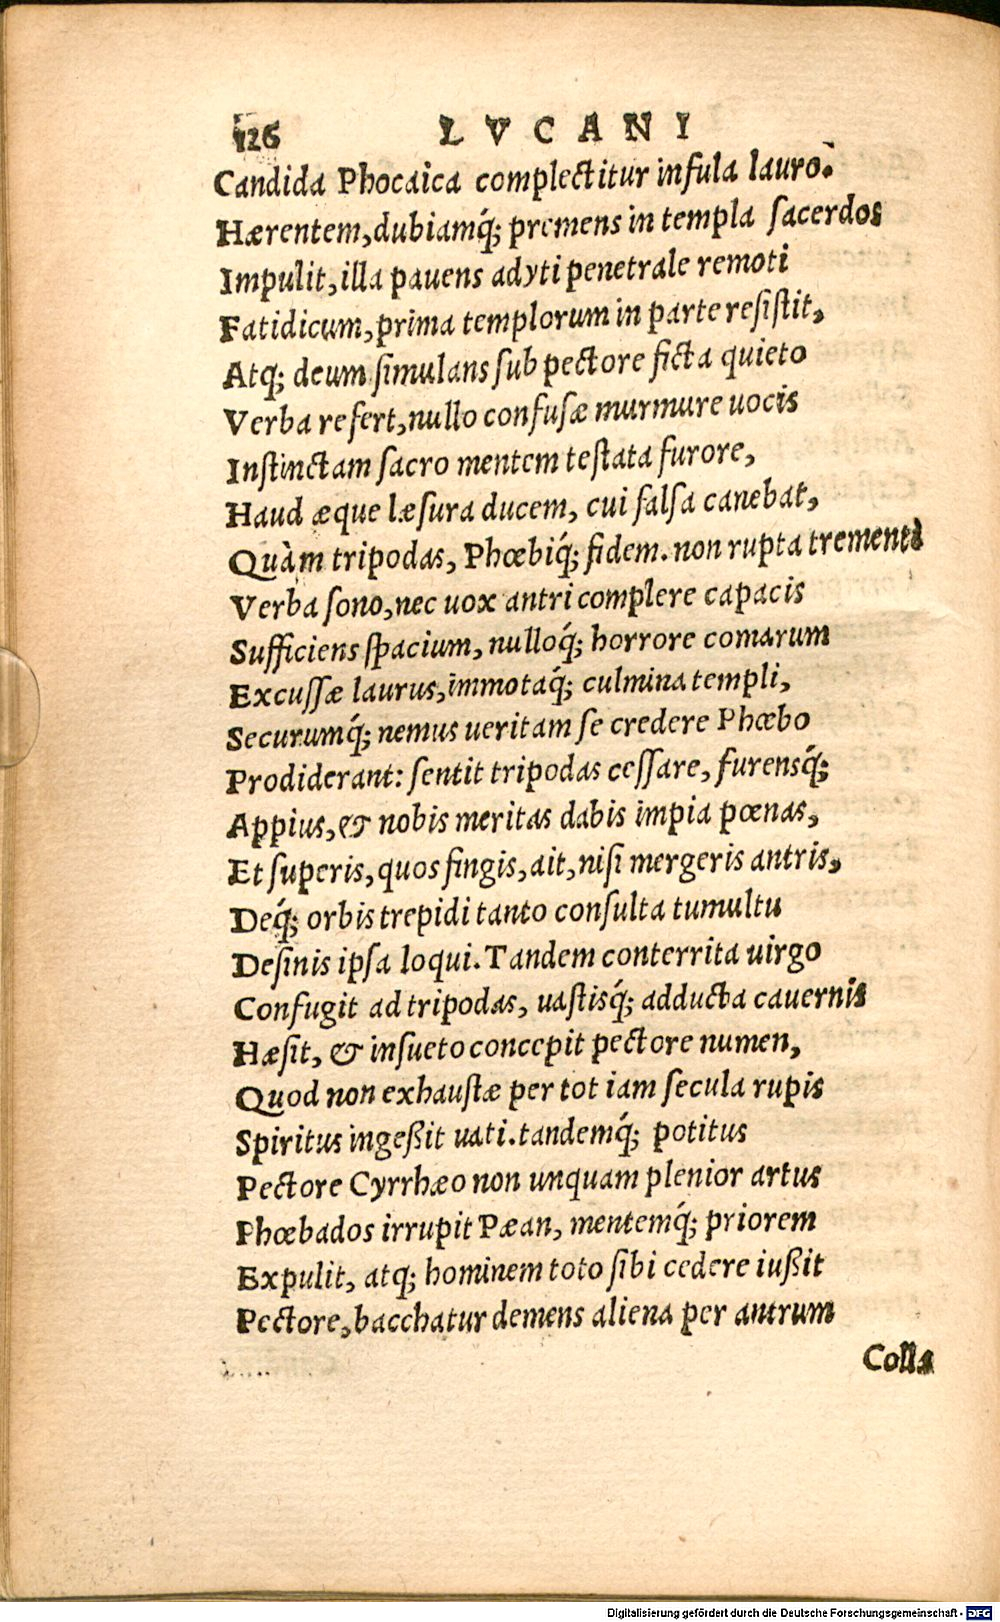 126 LVCANI
Candida Phocaica complectitur infula lauro.
Hærentem, dubiamq́; premens in templa sacerdos
Impulit, illa pauens adyti penetrale remoti
Fatidicum, prima templorum in parte resistit,
Atq; deum simulans sub pectore ficta quieto
Verba refert, nullo confusæ murmure uocis
Instinctam sacro mentem testata furore,
Haud æque læsura ducem, cui falsa canebat,
Quàm tripodas, Phœbiq́; fidem. non rupta trementi
Verba sono, nec uox antri complere capacis
Sufficiens spacium, nulloq́; horrore comarum
Excussæ laurus, immotaq́; culmina templi,
Securumq́; nemus ueritam se credere Phœbo
Prodiderant: sentit tripodas cessare, furensq́;
Appius, & nobis meritas dabis impia pœnas,
Et superis, quos fingis, ait, nisi mergeris antris,
Deq́; orbis trepidi tanto consulta tumultu
Desinis ipsa loqui. Tandem conterrita uirgo
Confugit ad tripodas, uastisq́; adducta cauernis
Hæsit, & insueto concepit pectore numen,
Quod non exhaustæ per tot iam secula rupis
Spiritus ingeßit uati. tandemq́; potitus
Pectore Cyrrhæo non unquam plenior artus
Phœbados irrupit Pæan, mentemq́; priorem
Expulit, atq; hominem toto sibi cedere iußit
Pectore, bacchatur demens aliena per antrum
Colla
Digitalisierung gefördert durch die Deutsche Forschungsgemeinschaft - DFG